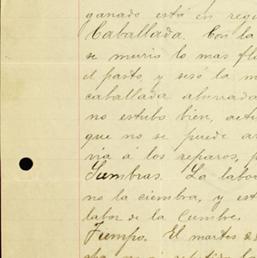 ganado está en regu
Caballada. Con la
se murio lo mas fl
el pasto, y sesó la m
caballada ahumada
no estubo bien, acti
que no se puede ar
via á los reparos, p
Siembras. La labo
no la ciembra, y est
labor de la Cumbre.
Tiempo. El martes 28